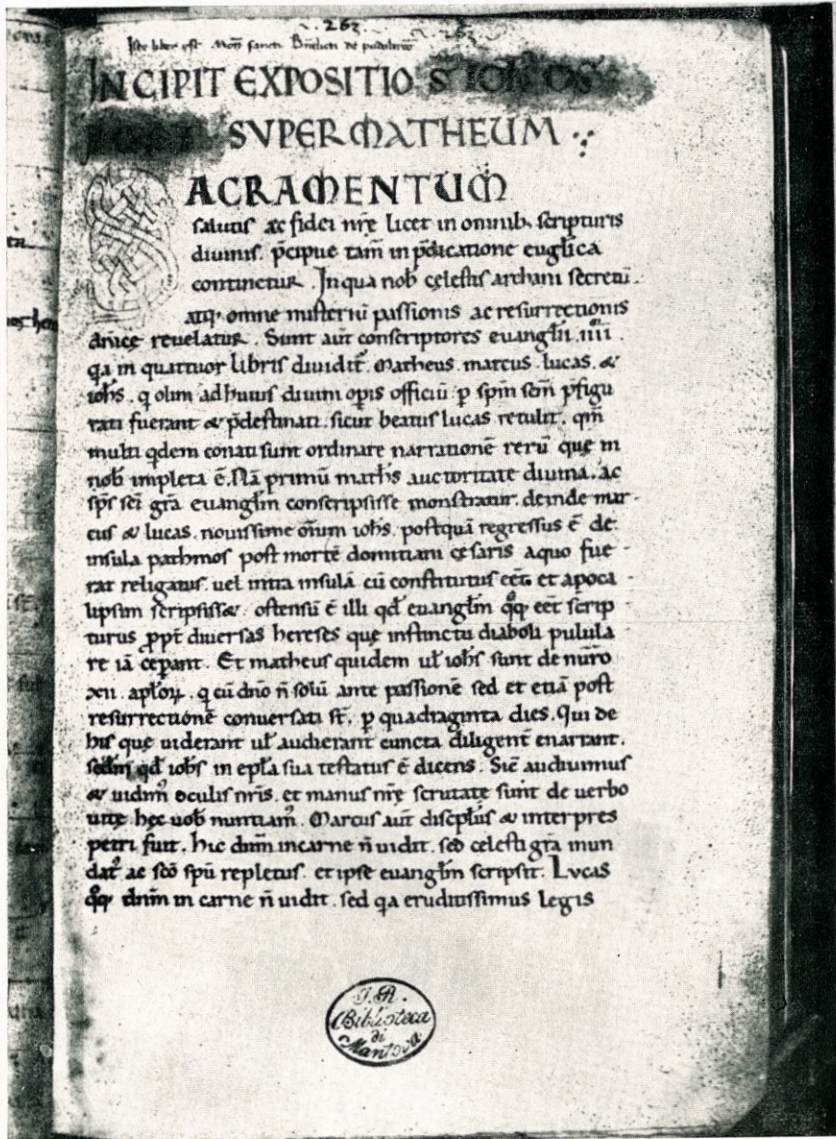 263
Iste liber est Mon̄ sancti Bn̄dicti de padolirone
INCIPIT EXPOSITIO S̄ IOH̄
SVPER MATHEUM
SACRAMENTUM
salutis ac fidei nr̄e licet in omnib; scripturis
diuinis. p̄cipue tam̄ in p̄dicatione eugl̄ica
continetur. In qua nob̄ cęlestis archani secretū.
atq; omne misteriū passionis ac resurrectionis
dn̄icę reuelatur. Sunt aut̄ conscriptores euangl̄ii. iiii.
qa in quattuor libris diuidit̄. Matheus. marcus. lucas. &
ioh̄s. q olim ad huius diuini op̄is officiū p sp̄m sc̄m p̄figu
rati fuerant & p̄destinati. sicut beatus lucas retulit. qm̄
multi qdem conati sunt ordinare narrationē rerū quę in
nob̄ impleta ē. Nā primū math̄s auctoritate diuina. ac
sp̄s sc̄i gr̄a euangl̄m conscripsisse monstratur. deinde mar-
cus & lucas. nouissime om̄ium ioh̄s. postquā regressus ē de
insula pathmos post mortē domitiani cęsaris a quo fue-
rat religatus. uel intra insulā cū constitutus eēt et apoca-
lipsim scripsiss&. ostensū ē illi qd̄ euangl̄m q̄q; eēt scrip-
turus ꝓpt̄ diuersas hereses quę instinctu diaboli pulula-
re iā cęperant. Et matheus quidem ul̄ ioh̄s sunt de nūro
xii. apl̄oꝝ. q cū dn̄o n̄ solū ante passionē sed et etiā post
resurrectionē conuersati st̄. p quadraginta dies. Qui de
his quę uiderant ul̄ audierant cuncta diligent̄ enarrant.
sedm̄ qd̄ ioh̄s in epl̄a sua testatus ē dicens. Sic̄ audiuimus
& uidim̄ oculis nr̄is. et manus nr̄ę scrutatę sunt de uerbo
uitę hec uob̄ nuntiam̄. Marcus aut̄ discipl̄us & interpres
petri fuit. hic dn̄m in carne n̄ uidit. sed celesti gr̄a mun
dat᾽ ac sc̄o sp̄u repletus. et ipse euangl̄m scripsit. Lvcas
q̄q; dn̄m in carne n̄ uidit. sed qa eruditissimus legis
I. R.
Biblioteca
di
Mantova.